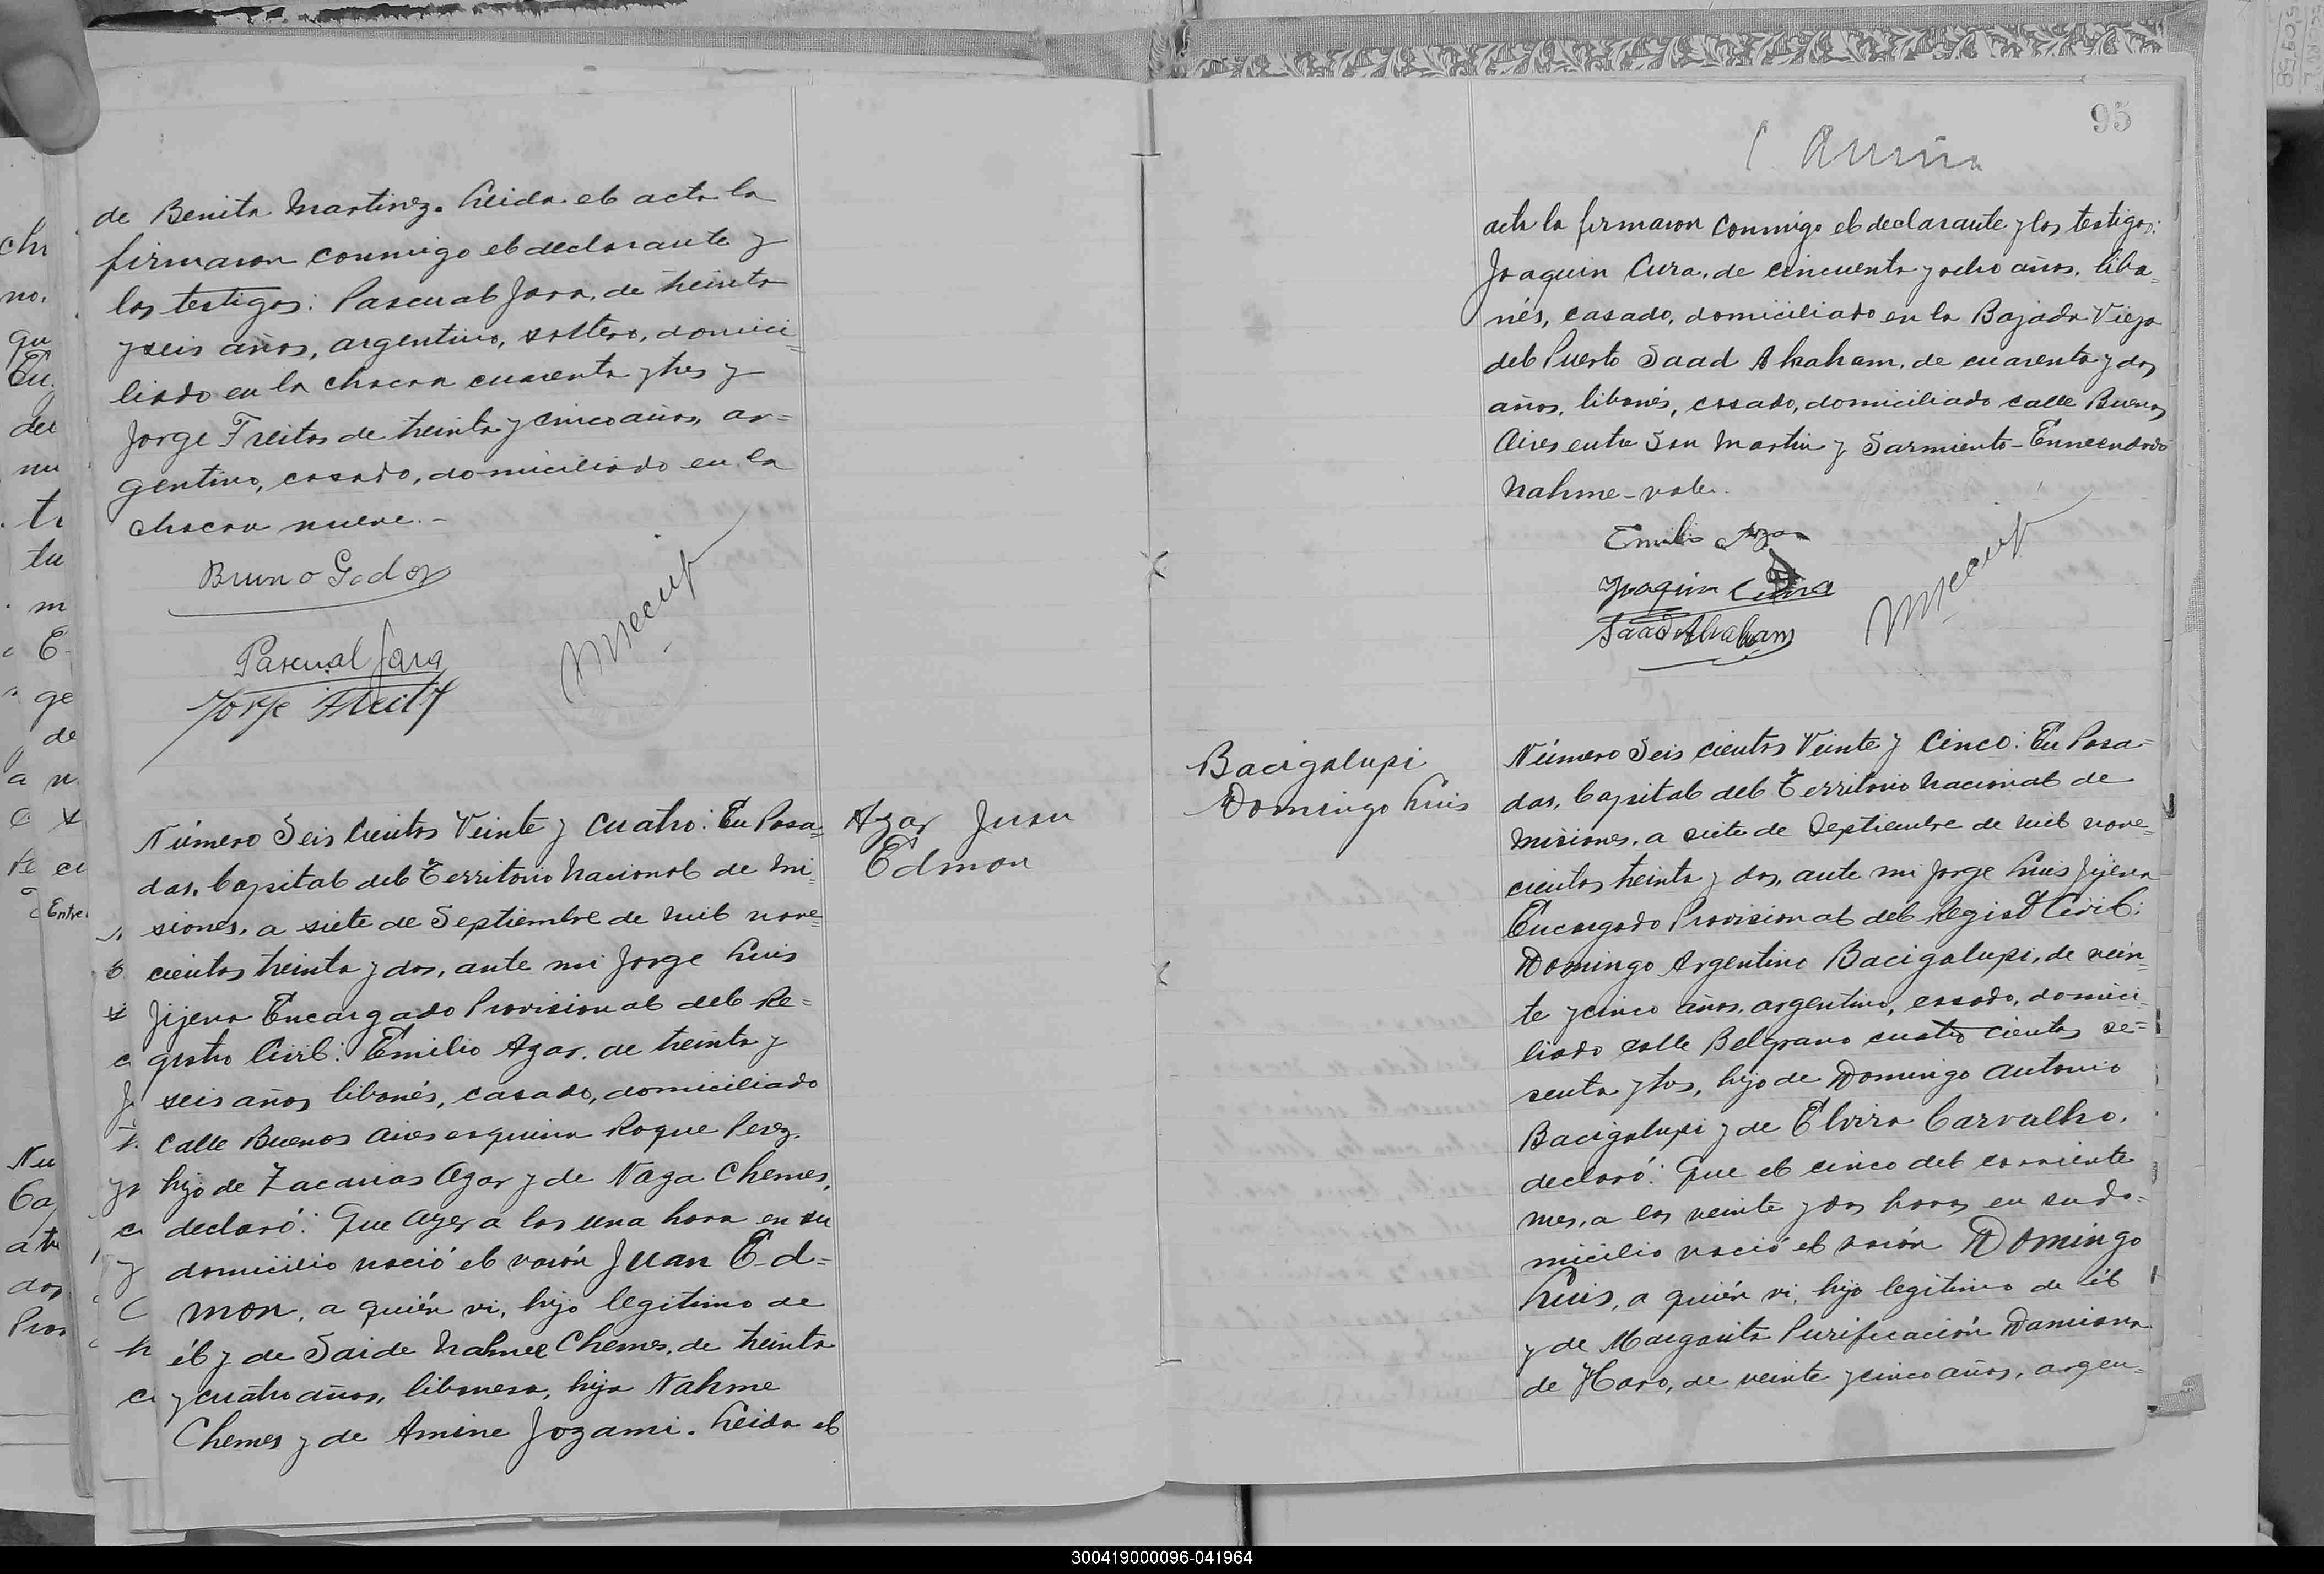 de Benita Martinez. Leida el acta la
firmaron conmigo el declarante y
los testigos: Pascual Jara, de treinta
y seis años, argentino, soltero, domici=
liado en la chacra cuarenta y tres y
Jorge Freitas de treinta y cinco años, ar=
gentino, casado, domiciliado en la
chacra nueve.-
Bruno Godoy
Pascual Jara
Jorge Freitas
Número Seis cientos Veinte y Cuatro: En Posa=
das, Capital del Territorio Nacional de Mi=
siones, a siete de Septiembre de mil nove=
cientos treinta y dos, ante mi Jorge Luis
Jijena Encargado Provisional del Re=
gistro Civil: Emilio Azar, de treinta y
seis años libanés, casado, domiciliado
Calle Buenos Aires esquina Roque Perez,
hijo de Zacarias Azar y de Naga Chemes,
declaró: Que ayer a las una hora en su
domicilio nació el varón Juan Ed=
mon, a quién vi, hijo legitimo de
él y de Saide Nahme Chemes, de treinta
y cuatro años, libanesa, hija Nahme
Chemes y de Amine Jozami. Leida el
Azar Juan
Edmon
95
acta la firmaron conmigo el declarante y los testigos:
Joaquin Cura, de cincuenta y ocho años, liba=
nés, casado, domiciliado en la Bajada Vieja
del Puerto Saad Abraham, de cuarenta y dos
años, libanés, casado, domiciliado calle Buenos
Aires entre San Martin y Sarmiento-Enmendado
Nahme-vale.
Emilio Azar
Joaquin Cura
Saad Abraham
Bacigalupi
Domingo Luis
Número Seis cientos Veinte y Cinco: En Posa=
das, Capital del Territorio Nacional de
Misiones, a siete de Septiembre de mil nove=
cientos treinta y dos, ante mi Jorge Luis Jijena
Encargado Provisional del Regist Civil:
Domingo Argentino Bacigalupi, de vein=
te y cinco años, argentino, casado, domici=
liado calle Belgrano cuatro cientos se=
senta y tres, hijo de Domingo Antonio
Bacigalupi y de Elvira Carvalho,
declaró: Que el cinco del corriente
mes, a las veinte y dos horas en su do=
micilio nació el varón Domingo
Luis, a quién vi, hijo legitimo de él
y de Margarita Purificación Damiana
de Haro, de veinte y cinco años, argen=
300419000096-041964